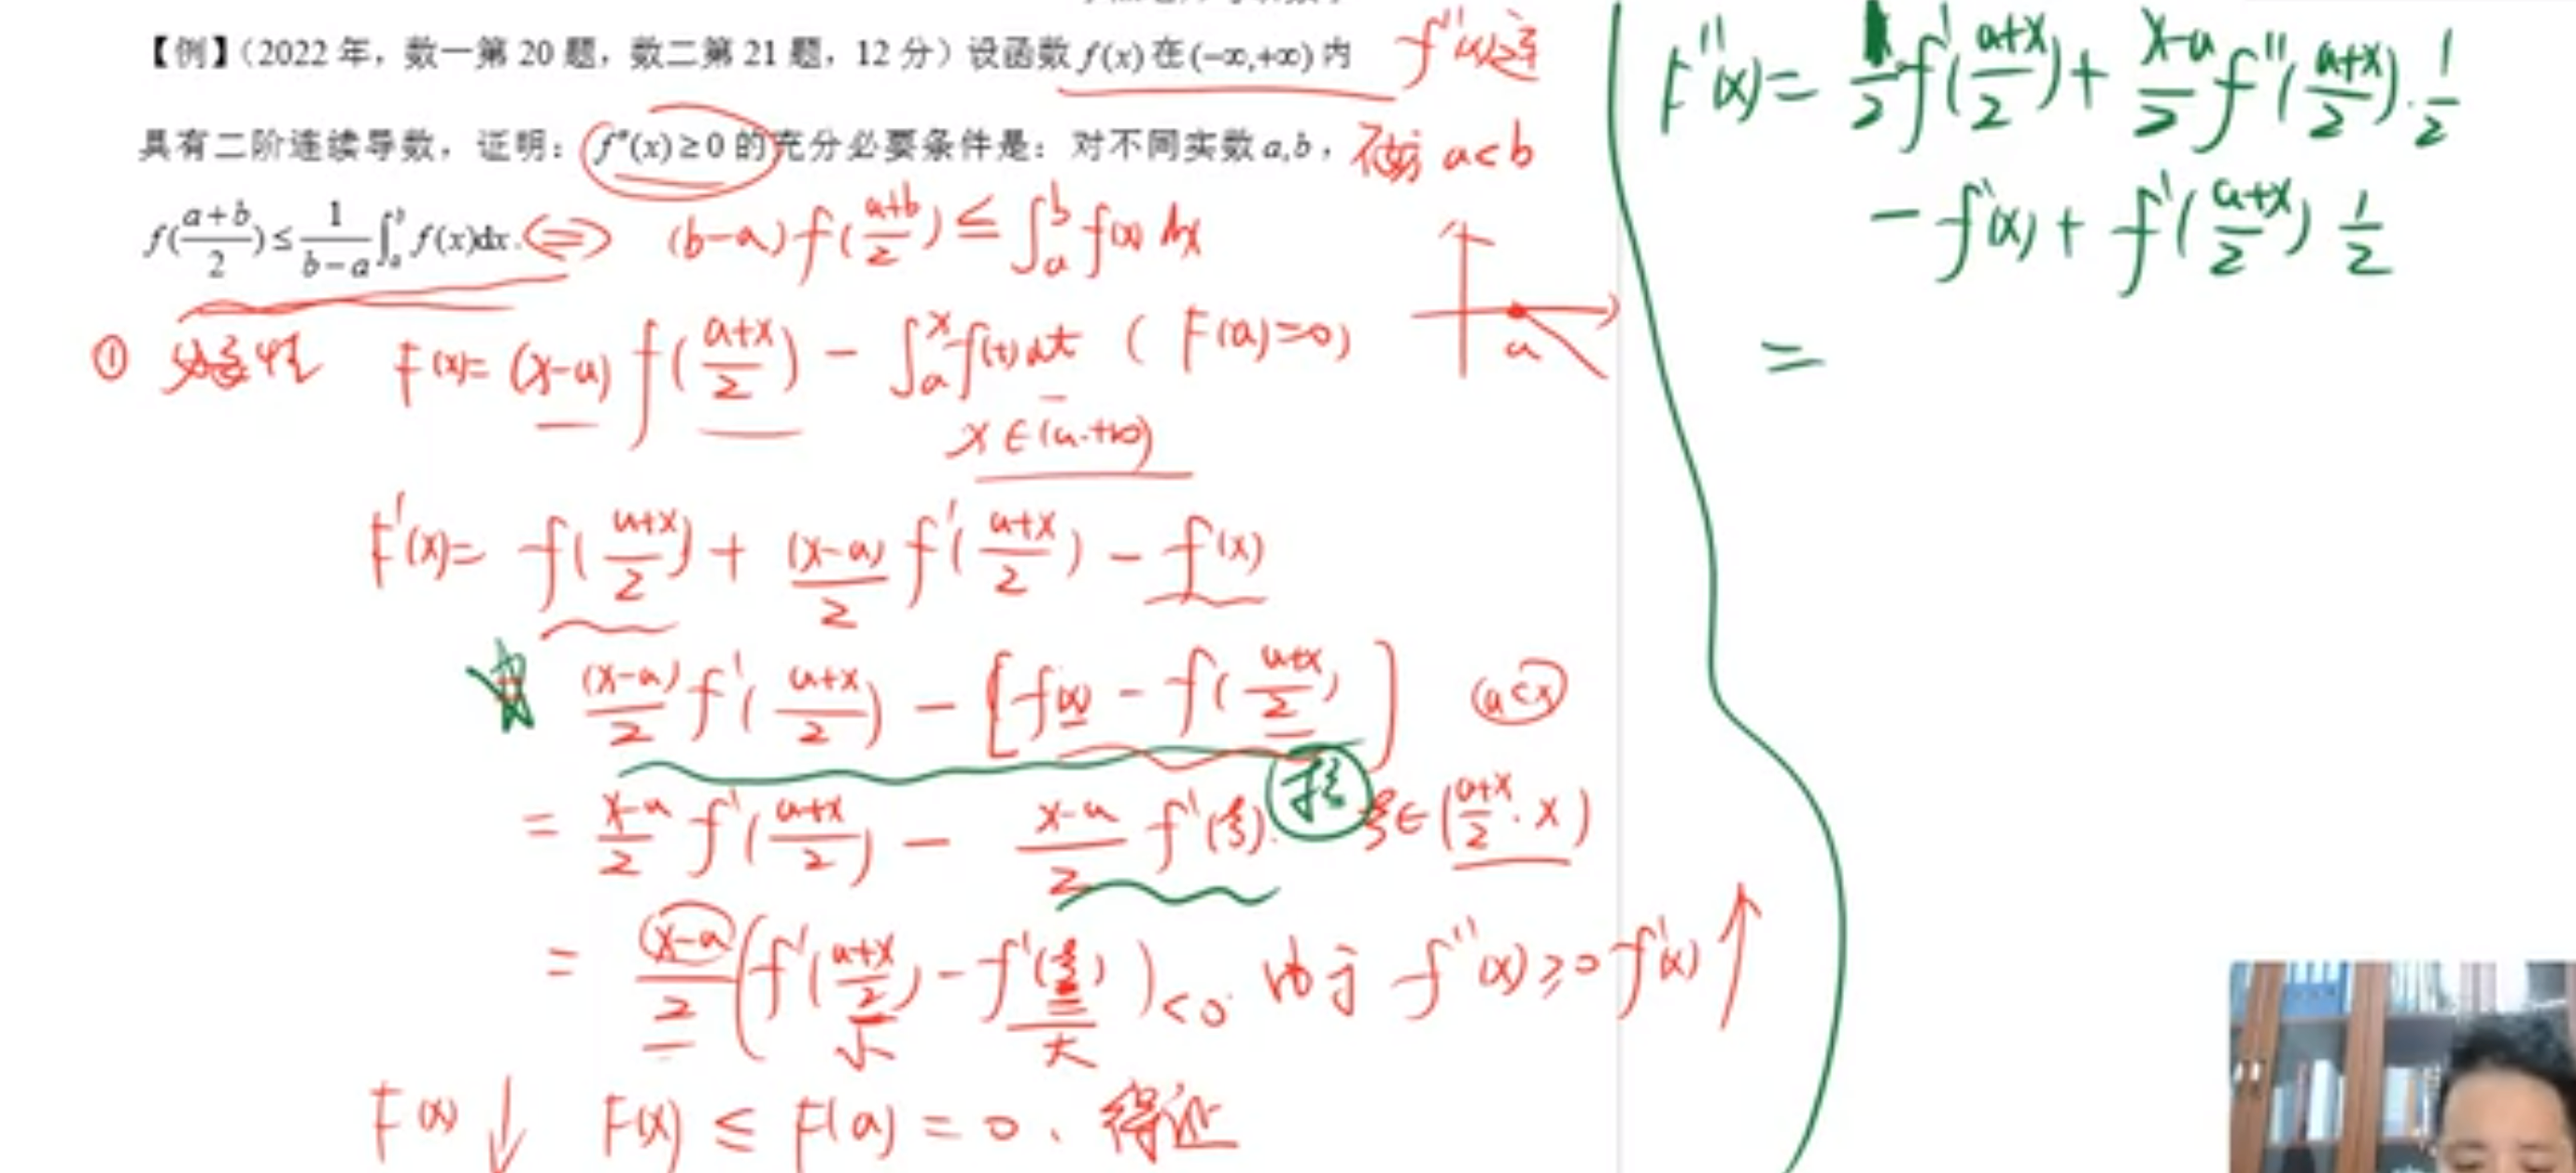 【例】(2022 年，数一第 20 题，数二第 21 题，12 分) 设函数 f(x) 在 (-∞,+∞) 内
具有二阶连续导数，证明：f''(x) ≥ 0 的充分必要条件是：对不同实数 a,b， 不妨 a<b
f((a+b)/2) ≤ 1/(b-a) ∫_a^b f(x)dx. ⇔ (b-a) f((a+b)/2) ≤ ∫_a^b f(x) dx
a
① 必要性 F(x) = (x-a) f((a+x)/2) - ∫_a^x f(t)dt ( F(a)=0 )
x∈(a,+∞)
F'(x) = f((a+x)/2) + (x-a)/2 f'((a+x)/2) - f(x)
(x-a)/2 f'((a+x)/2) - [f(x) - f((a+x)/2)] (a<x)
= (x-a)/2 f'((a+x)/2) - (x-a)/2 f'(ξ). ξ∈((a+x)/2, x)
= (x-a)/2 (f'((a+x)/2) - f'(ξ)) <0. 由于 f''(x) ≥ 0 f'(x) ↑
小 大
F(x) ↓ F(x) ≤ F(a) = 0. 得证
F''(x) = 1/2 f'((a+x)/2) + (x-a)/2 f''((a+x)/2)·1/2
- f'(x) + f'((a+x)/2) 1/2
=